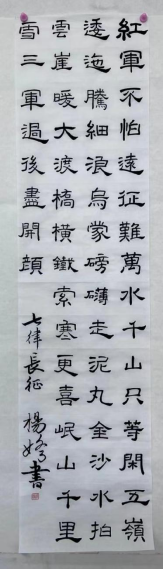 紅軍不怕遠征難萬水千山只等閑五嶺
逶迤騰細浪烏蒙磅礴走泥丸金沙水拍
雲崖暖大渡橋橫鐵索寒更喜岷山千里
雪三軍過後盡開顔
七律長征 楊
書